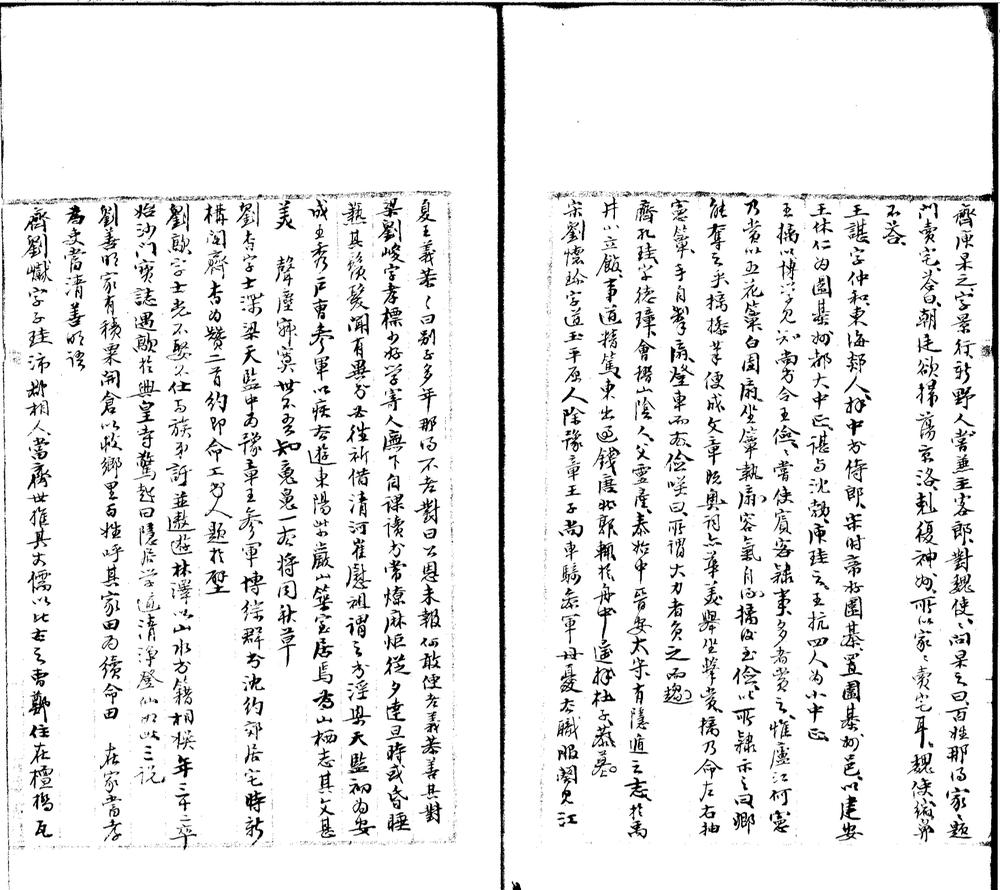 齊庾杲之字景行新野人嘗兼主客郎對魏使、問杲之曰百姓那得家、題
門賣宅答曰朝廷欲掃蕩京洛剋復神州所以家、賣宅耳、魏使縮鼻
不荅
王諶字仲和東海郯人、中書侍郎宋時帝好圍碁置圍碁州邑以建安
王休仁為圍碁州都大中正諶与沈勃庾珪之王抗四人為小中正
王摛以博学見知尚書令王儉、嘗使賓客隸事多者賞之惟廬江何憲
乃賞以五花簟白団扇坐簟執扇容氣自得摛後至儉以所隸示之曰卿
能奪之乎摛操筆便成文章既奥詞亦華美舉坐擊賞摛乃命左右抽
憲簟手自掣扇登車而去儉咲曰所謂大力者負之而趨
齊孔珪字德璋會稽山陰人父靈產泰始中晉安太守有隱遁之志於禹
井山立館事道精篤東出過錢唐北郭輒於舟中遥拜杜子恭墓
宋劉懷珍字道玉平原人除豫章王子尚車騎參軍母憂去職服闋見江
夏王義恭、曰別子多年那得不老對曰公恩未報何敢便老義恭善其對
梁劉峻字孝標少好学寄人廡下自課讀書常燎麻炬從夕達旦時或昏睡
爇其鬚髮聞有異書必往祈借清河崔慰祖謂之書淫興天監初為安
成王秀戸曹參軍以疾去遊東陽紫巖山築室居焉為山栖志其文甚
美　聲塵寂寞世不吾知魂魄一去將同秋草
劉杳字士深梁天監中為豫章王參軍博綜群書沈約郊居宅時新
構閣齊杳為贊二首約即命工書人題於壁
劉歊字士光不娶不仕与族弟訏並遨遊林澤以山水書籍相娯年三十二卒
始沙門宝誌遇歊於興皇寺驚起曰隱居学道清淨登仙如此三說
劉善明家有積粟開倉以救鄉里百姓呼其家田為續命田　在家當孝
為吏當清善明語
齊劉瓛字子珪沛郡相人當齊世推其大儒以比古之曹鄭住在檀橋瓦